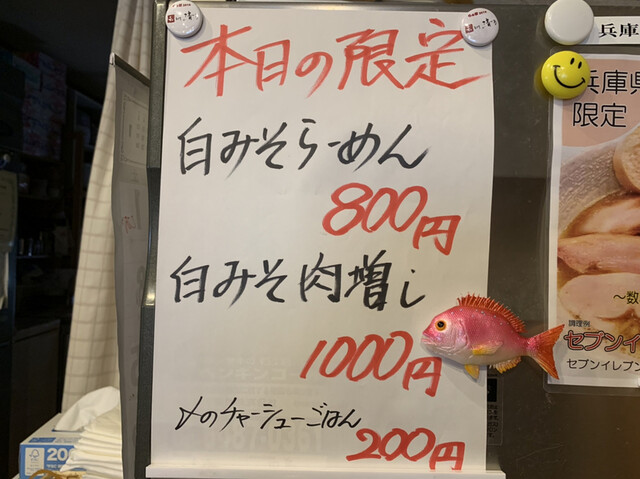 本日の限定
白みそらーめん
800円
白みそ肉増し
1000円
〆のチャーシューごはん
200円
兵庫
兵庫県
限定
～数
調理例
セブンイ
セブンイレブン
200